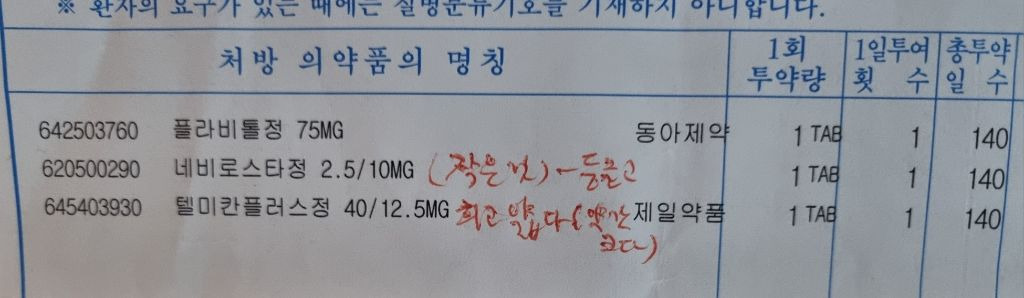 ※ 환자의 요구가 있는 때에는 질병분류기호를 기재하지 아니합니다.
처방 의약품의 명칭 1회 투약량 1일투여 횟 수 총투약 일 수
642503760 플라비톨정 75MG 동아제약 1 TAB 1 140
620500290 네비로스타정 2.5/10MG (작은 것) - 둥글고 1 TAB 1 140
645403930 텔미칸플러스정 40/12.5MG 희고 얇다 (약간 크다) 제일약품 1 TAB 1 140